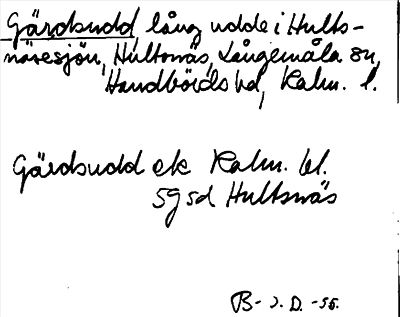 Gärdsudd, lång udde i Hults-
näsesjön, Hultsnäs, Långemåla sn,
Handbörds hd, Kalm. l.
Gärdsudd ek Kalm. bl.
5g sd Hultsnäs
B- D. -55.